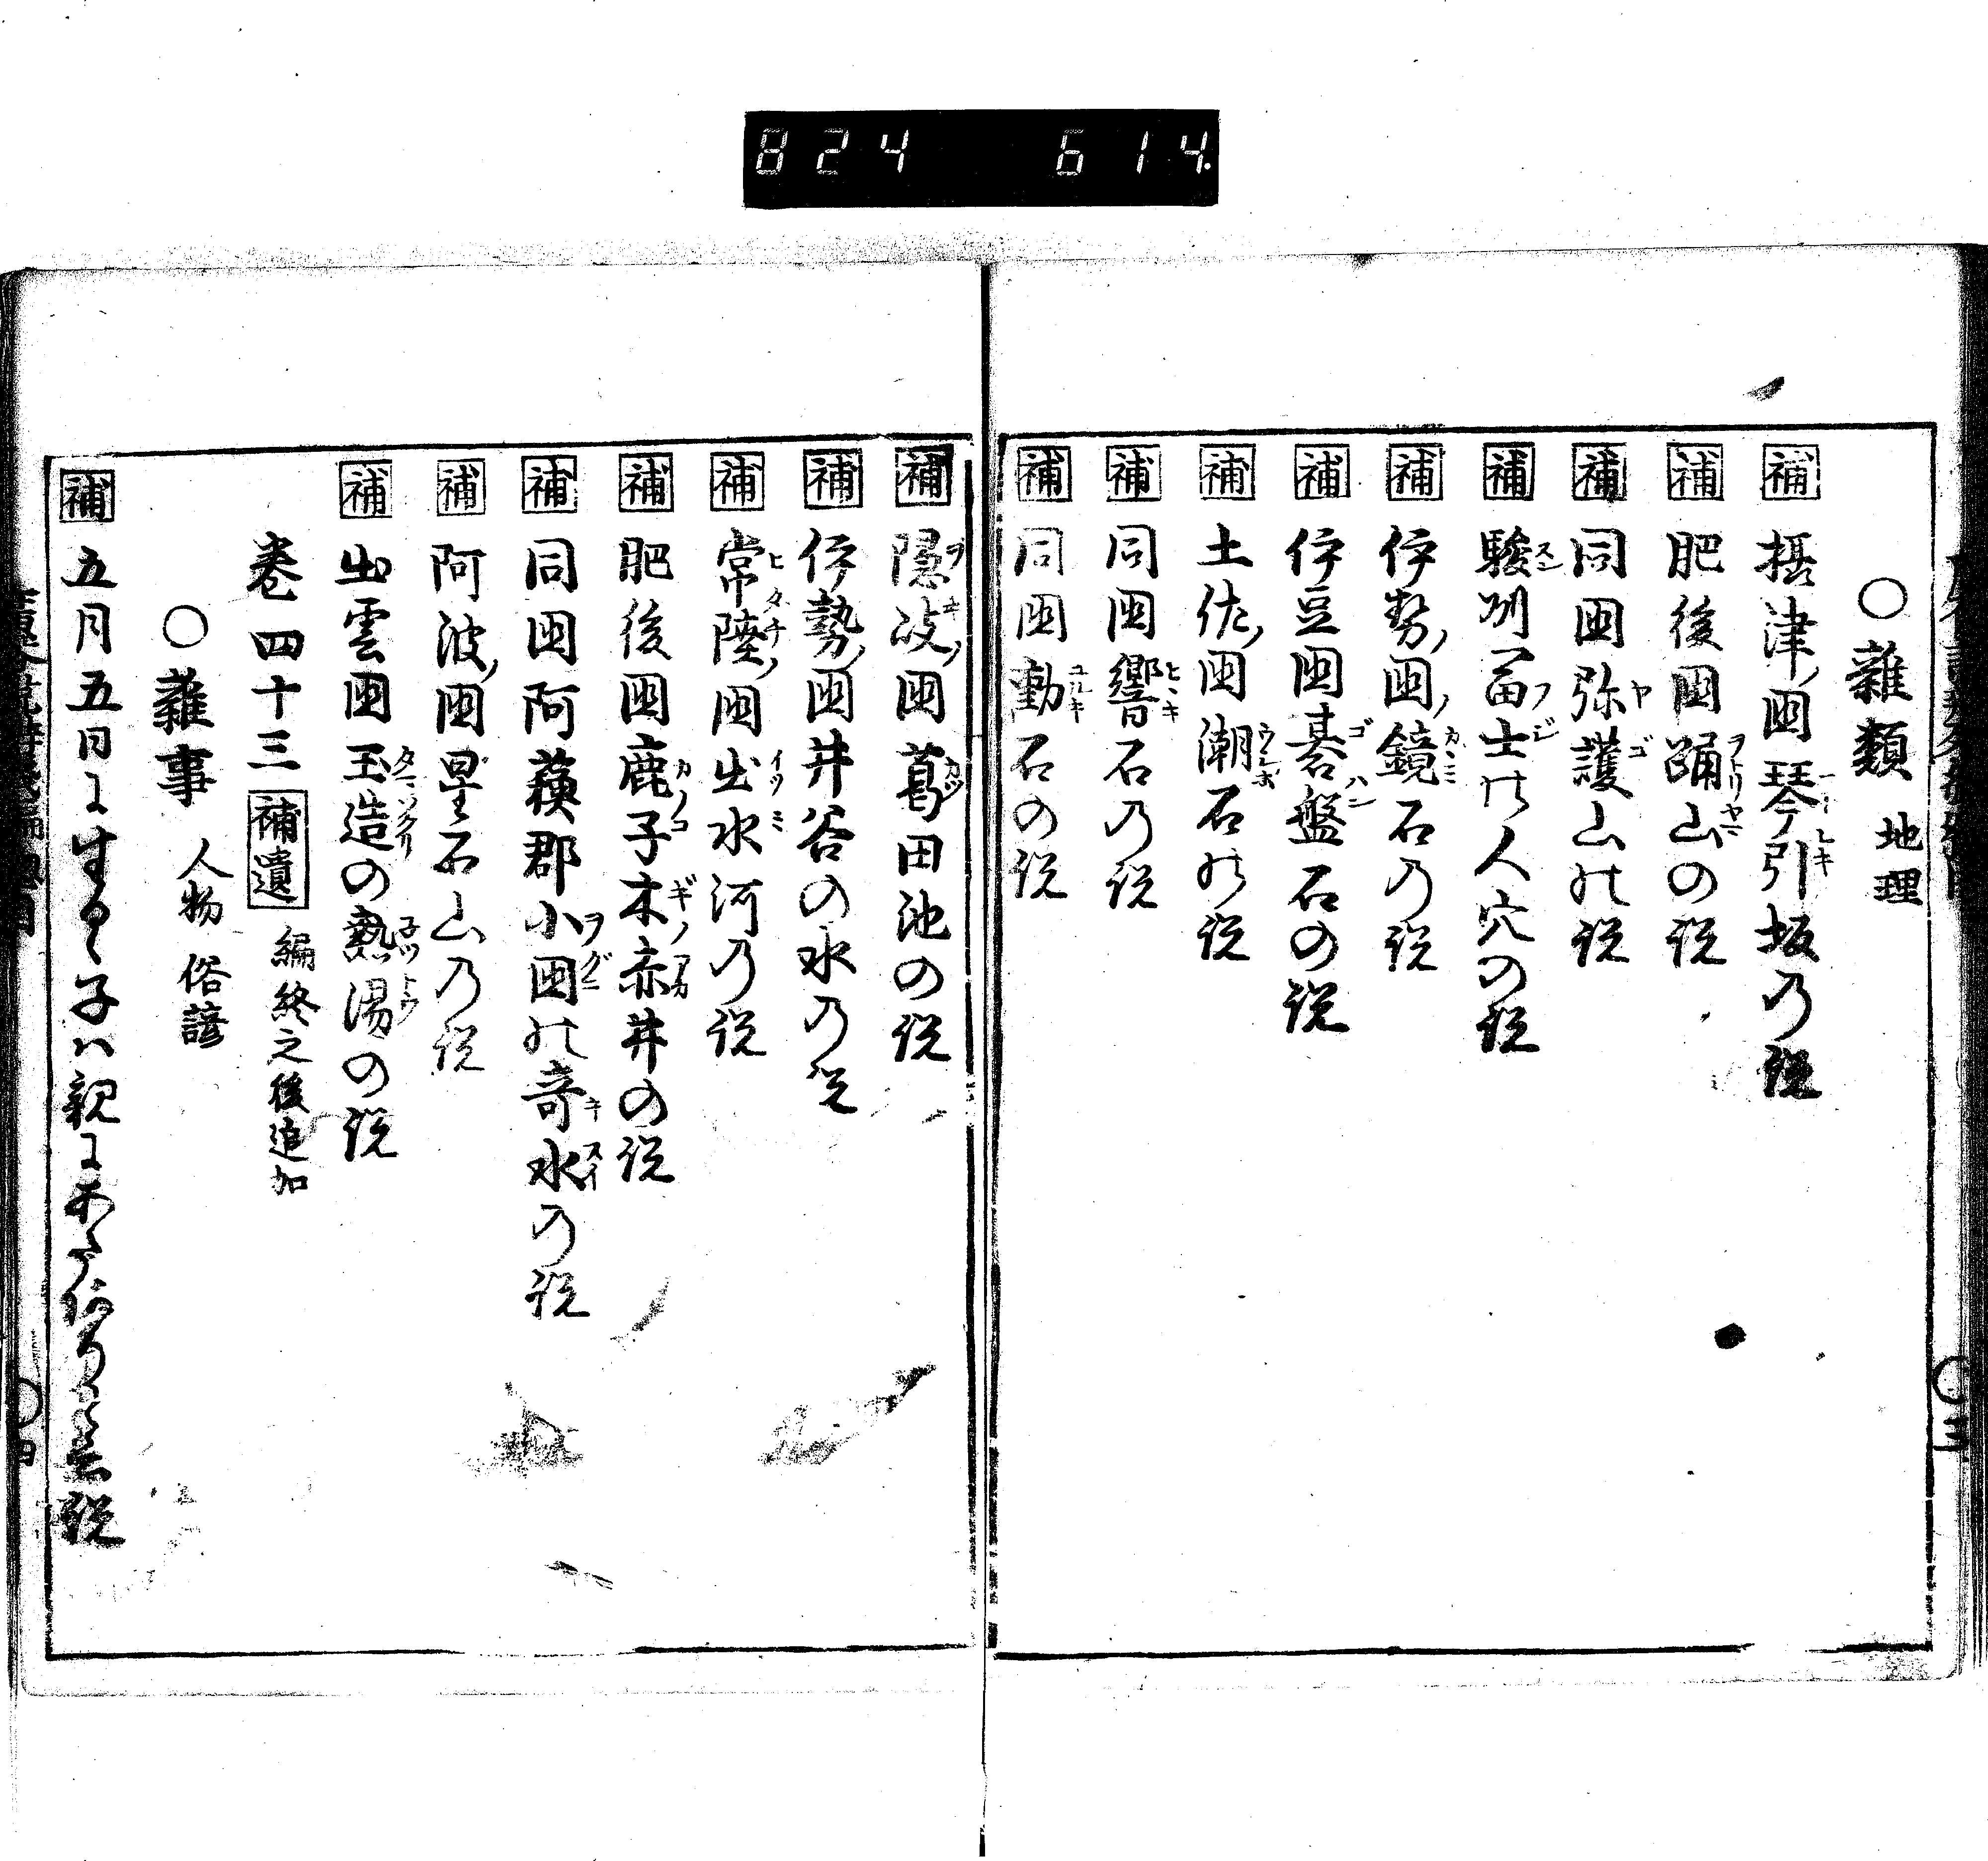 824 614
○雜類 地理
補 摂津ノ国琴引坂の説
補 肥後国踊山の説
補 同国弥護山の説
補 駿州冨士の人穴の説
補 伊勢ノ国ノ鏡石の説
補 伊豆国碁盤石の説
補 土佐ノ国潮石の説
補 同国響石の説
補 同国動石の説
補 隠岐ノ国葛田池の説
補 伊勢ノ国井谷の水の説
補 常陸ノ国出水河の説
補 肥後国鹿子木赤井の説
補 同国阿蘓郡小国の奇水の説
補 阿波ノ国星石山の説
補 出雲国玉造の熱湯の説
巻四十三 補遺 編終之後追加
○雜事 人物 俗諺
補 五月五日に生るゝ子ハ親に